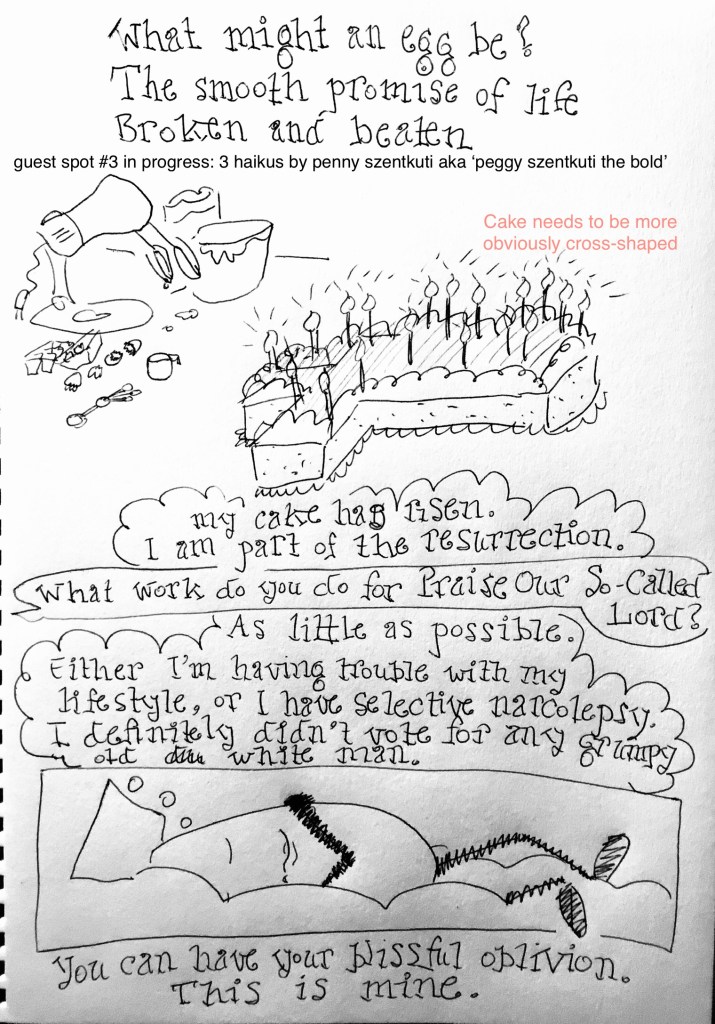 What might an egg be?
The smooth promise of life
Broken and beaten
guest spot #3 in progress: 3 haikus by penny szentkuti aka ‘peggy szentkuti the bold’
Cake needs to be more
obviously cross-shaped
my cake has risen.
I am part of the resurrection.
What work do you do for Praise Our So-Called
Lord?
As little as possible.
Either I'm having trouble with my
lifestyle, or I have selective narcolepsy.
I definitely didn't vote for any grumpy
old white man.
You can have your blissful oblivion.
This is mine.